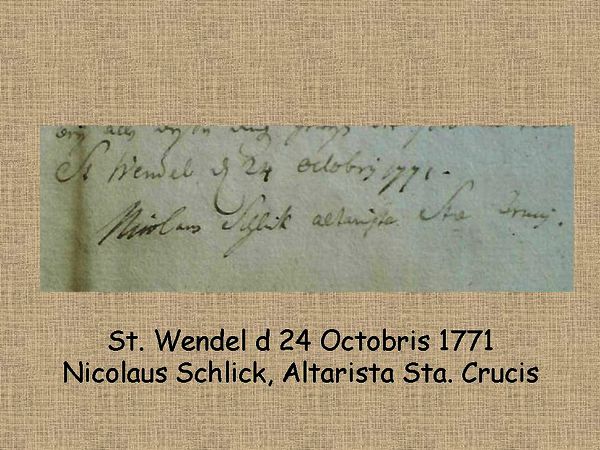 St Wendel d 24 octobris 1771.
Nicolaus Schlick altarista Sta Crucis.
St. Wendel d 24 Octobris 1771
Nicolaus Schlick, Altarista Sta. Crucis